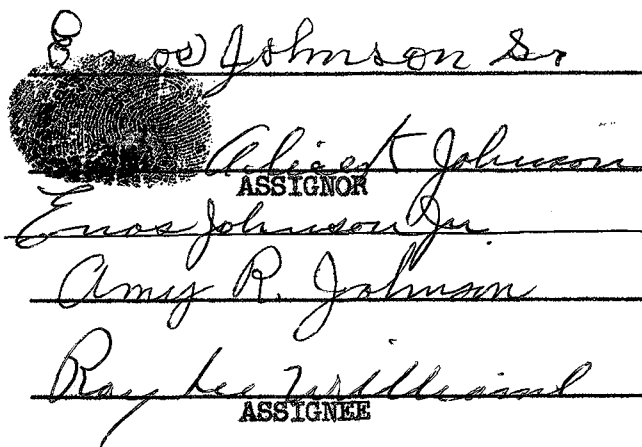 Enos Johnson Sr
Alice K Johnson
ASSIGNOR
Enos Johnson Jr.
Amy R. Johnson
Ray Lee Williams
ASSIGNEE